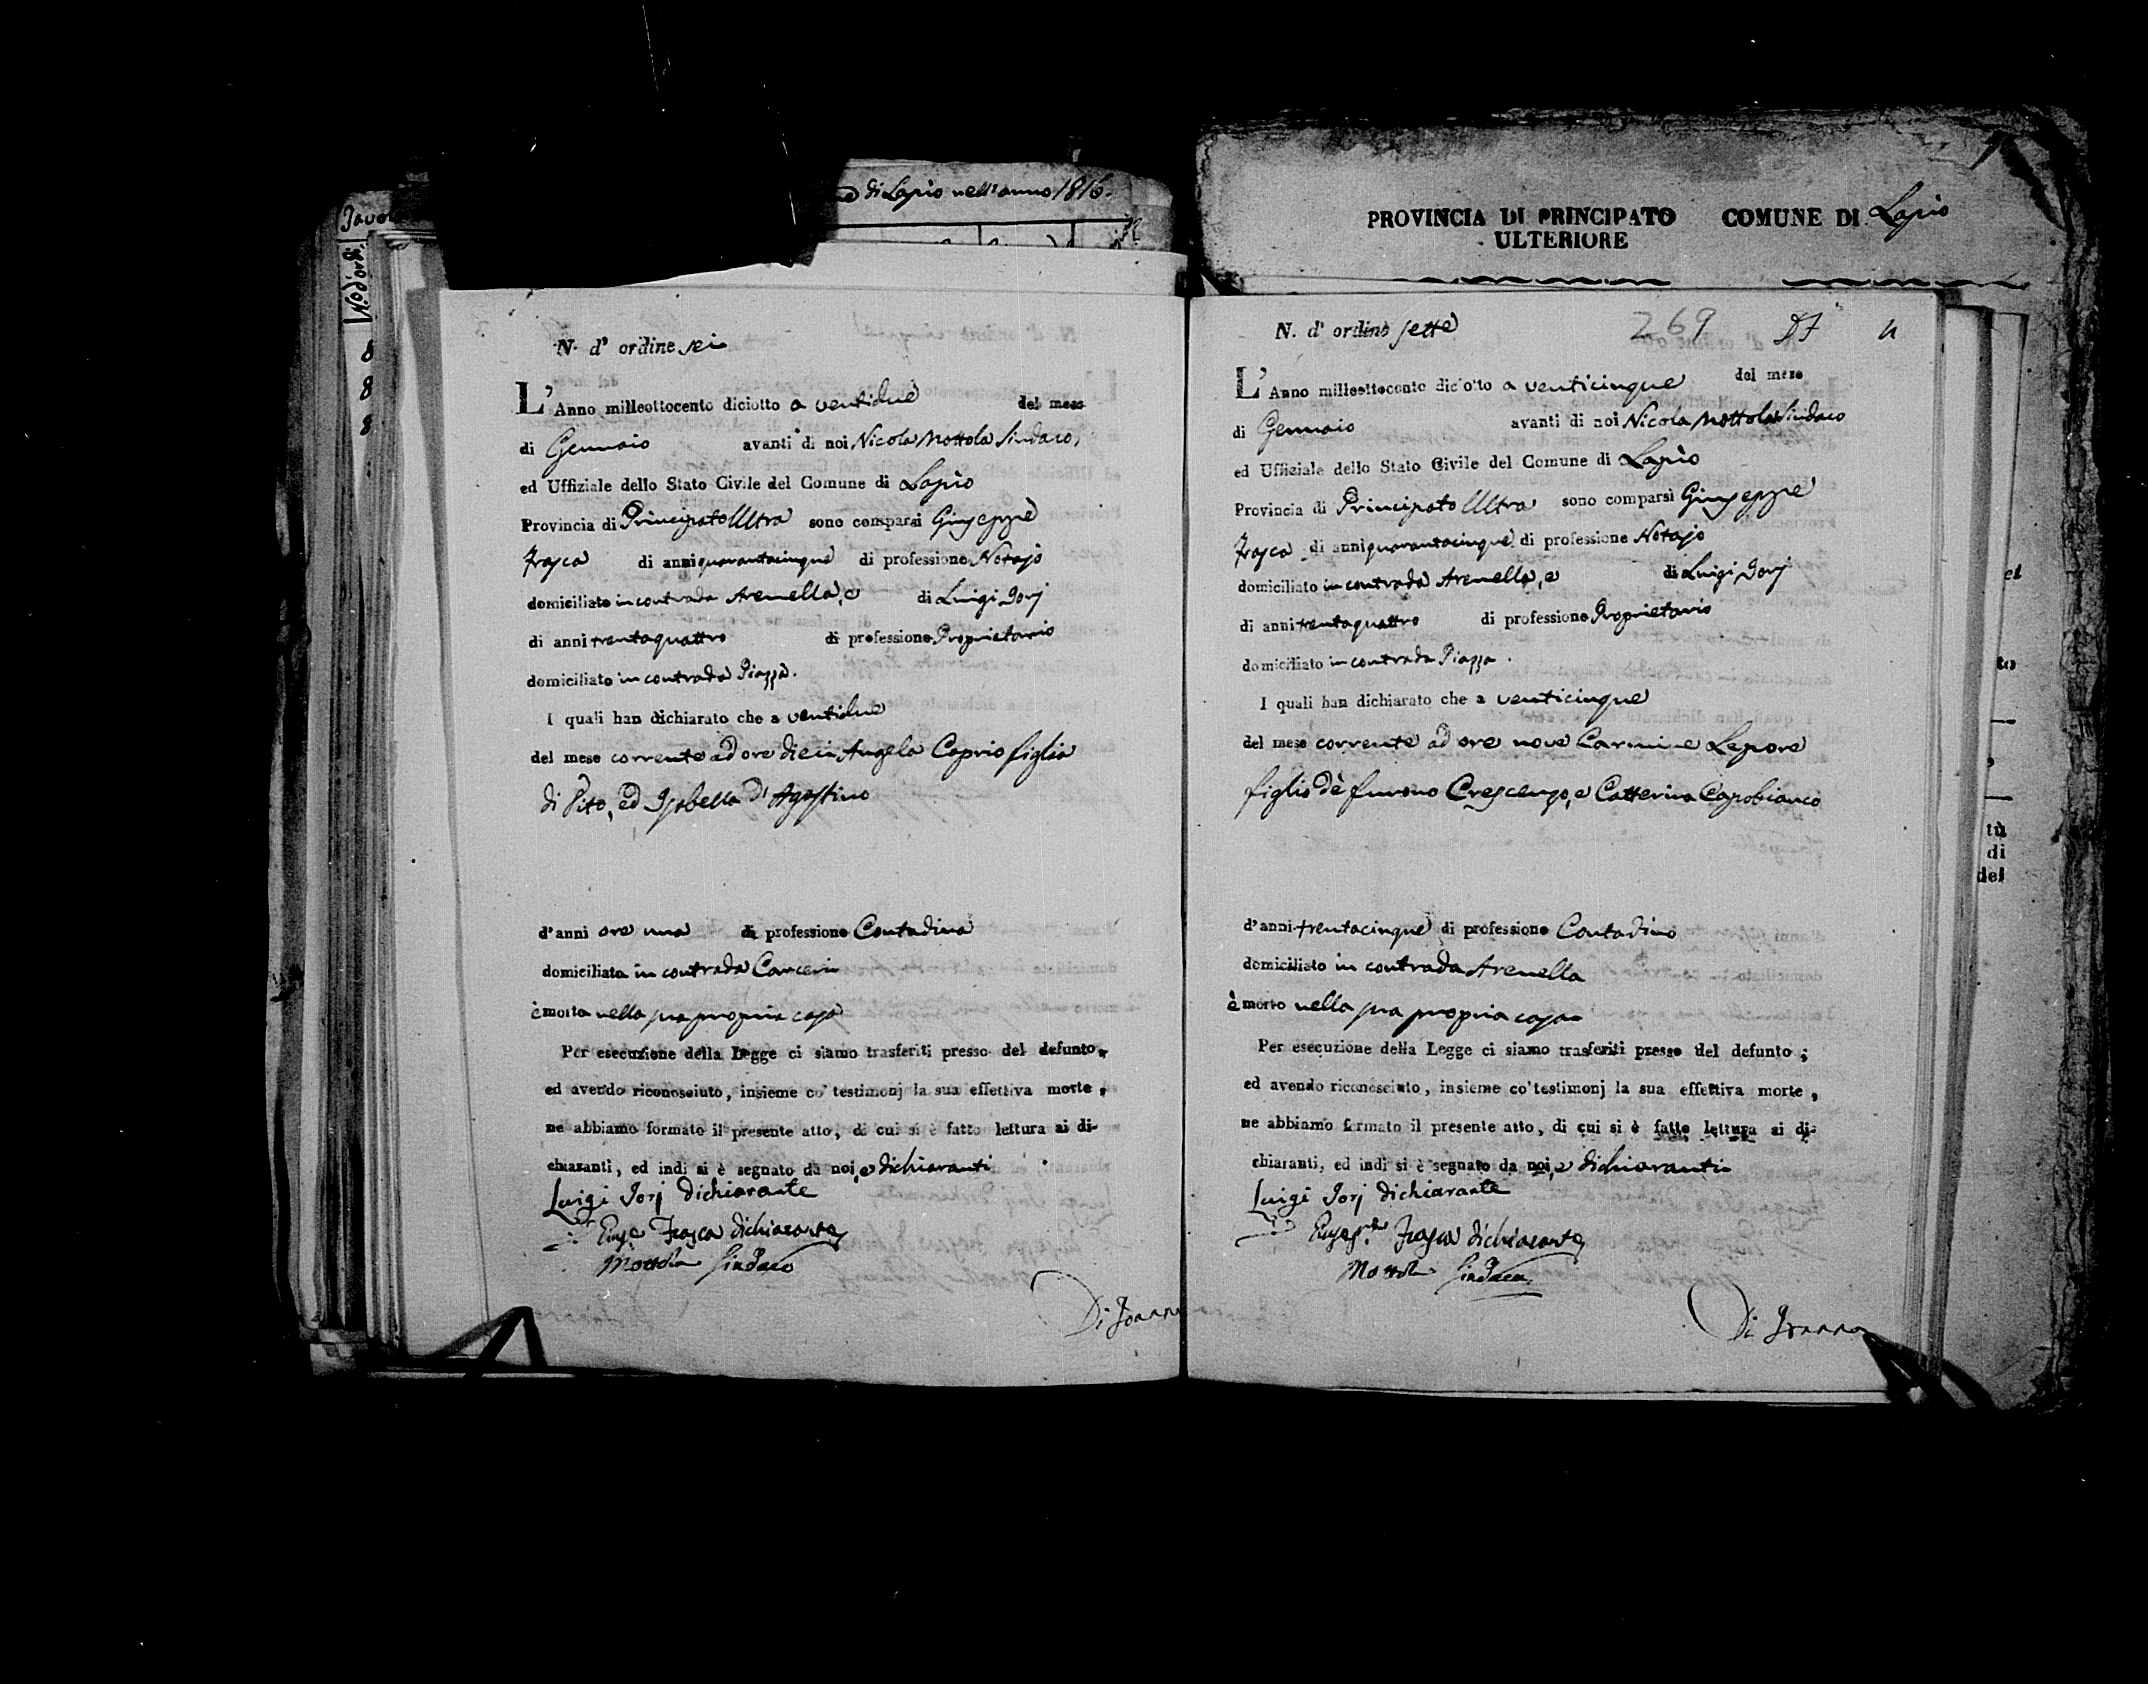 di Lapio nell'anno 1816.
N.o d'ordi.
8
8
8
N. d' ordine sei
L'Anno milleottocento diciotto a ventidue del mese
di Gennaio avanti di noi Nicola Mottola Sindaco,
ed Uffiziale dello Stato Civile del Comune di Lapio
Provincia di Principato Ultra sono comparsi Giuseppe
Frasca di anni quarantacinque di professione Notajo
domiciliato in contrada Arenella, e di Luigi Iorj
di anni trentaquattro di professione Proprietario
domiciliato in contrada Piazza.
I quali han dichiarato che a ventidue
del mese corrente ad ore dieci Angela Caprio figlia
di Vito, ed Isabella d'Agostino
d'anni ore una di professione Contadina
domiciliata in contrada Carceri
è morta nella sua propria casa
Per esecuzione della Legge ci siamo trasferiti presso del defunto,
ed avendo riconosciuto, insieme co' testimonj la sua effettiva morte,
ne abbiamo formato il presente atto, di cui si è fatto lettura ai di-
chiaranti, ed indi si è segnato da noi, e dichiaranti
Luigi Iorj dichiarante
Frasca dichiarante
Mottola Sindaco
Di Ioanna
PROVINCIA DI PRINCIPATO COMUNE DI Lapio
ULTERIORE
N. d' ordine sette 269
L'Anno milleottocento diciotto a venticinque del mese
di Gennaio avanti di noi Nicola Mottola Sindaco
ed Uffiziale dello Stato Civile del Comune di Lapio
Provincia di Principato Ultra sono comparsi Giuseppe
Frasca di anni quarantacinque di professione Notajo
domiciliato in contrada Arenella, e di Luigi Iorj
di anni trentaquattro di professione Proprietario
domiciliato in contrada Piazza.
I quali han dichiarato che a venticinque
del mese corrente ad ore nove Carmine Lepore
figlio dè furono Crescenzo, e Catterina Capobianco
d'anni trentacinque di professione Contadino
domiciliato in contrada Arenella
è morto nella sua propria casa
Per esecuzione della Legge ci siamo trasferiti presso del defunto;
ed avendo riconosciuto, insieme co' testimonj la sua effettiva morte,
ne abbiamo formato il presente atto, di cui si è fatto lettura ai di-
chiaranti, ed indi si è segnato da noi, e dichiaranti
Luigi Iorj dichiarante
Frasca dichiarante
Mottola Sindaco
Di Ioanna
to
tù
di
del